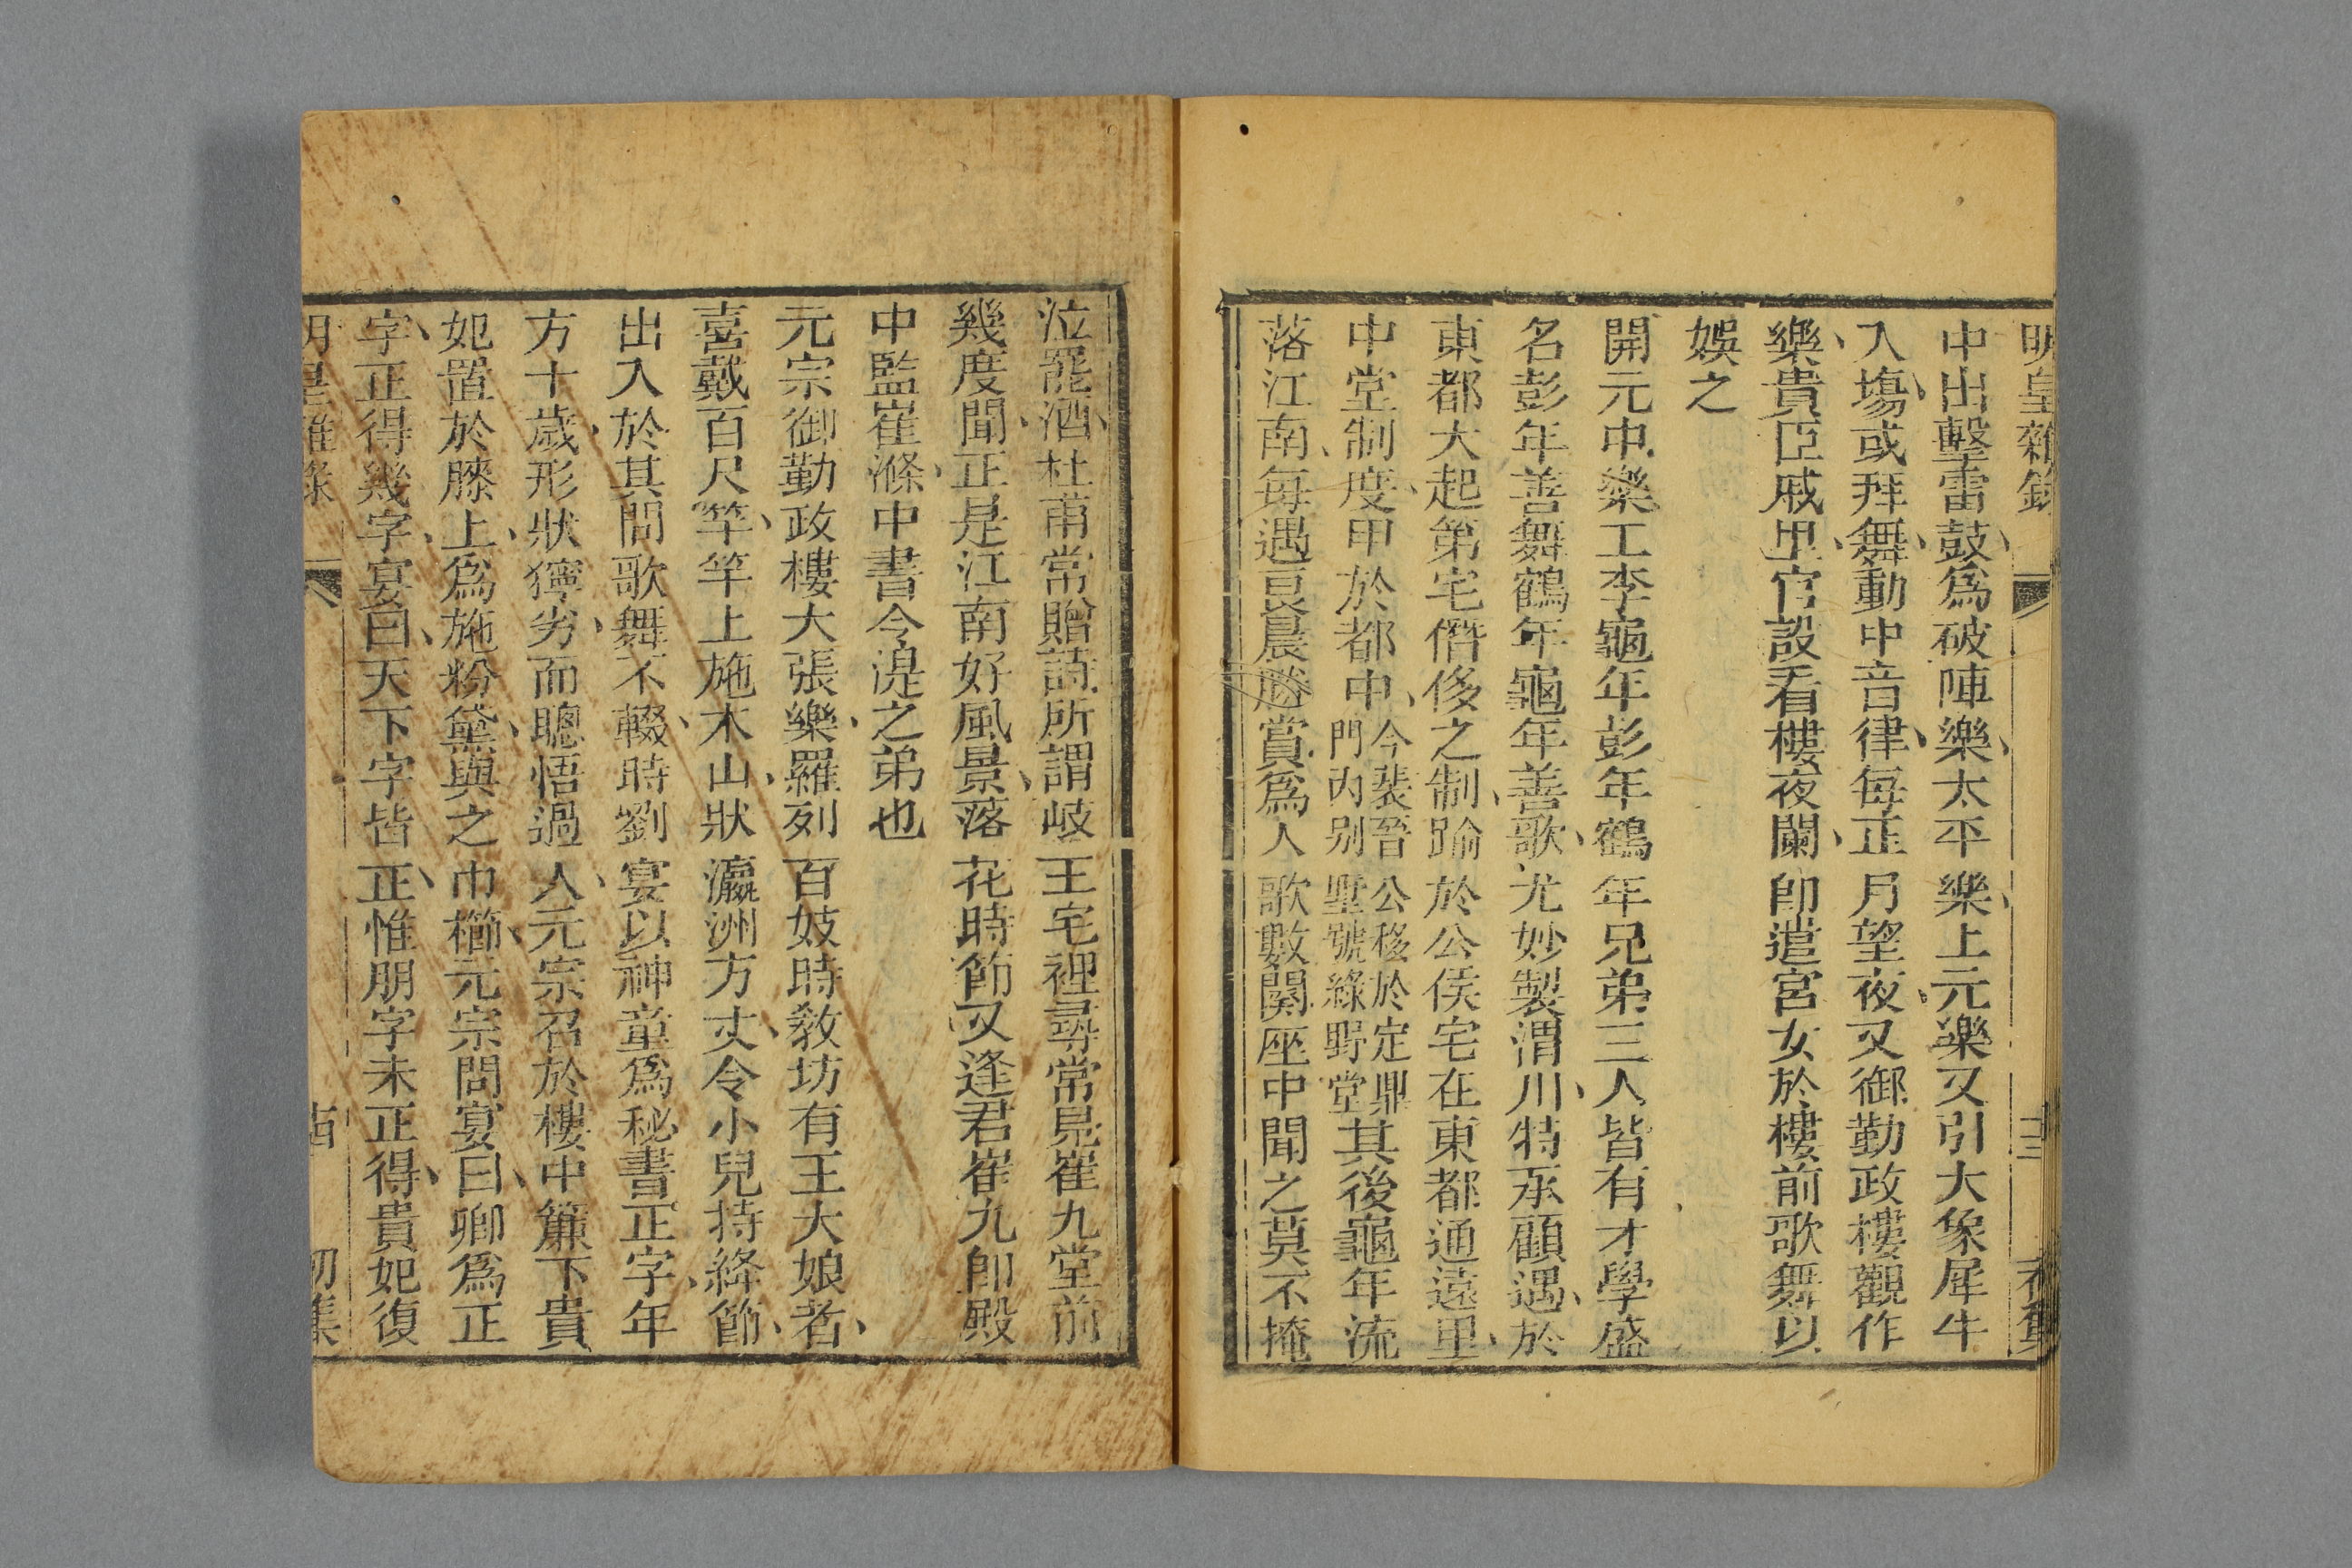 明皇雜錄
中出擊雷鼓為破陣樂太平樂上元樂又引大象犀牛
入塲或拜舞動中音律每正月望夜又御勤政樓觀作
樂貴臣戚里官設看樓夜闌即遣宮女於樓前歌舞以
娛之
開元中樂工李龜年彭年鶴年兄弟三人皆有才學盛
名彭年善舞鶴年龜年善歌尤妙製渭川特承顧遇於
東都大起第宅僭侈之制踰於公侯宅在東都通遠里
中堂制度甲於都中今裴晉公移於定鼎門內别墅號綠野堂其後龜年流
落江南每遇良晨勝賞爲人歌數闋座中聞之莫不掩
泣罷酒杜甫常贈詩所謂岐王宅裡尋常見崔九堂前
幾度聞正是江南好風景落花時節又逢君崔九即殿
中監崔滌中書令湜之弟也
元宗御勤政樓大張樂羅列百妓時敎坊有王大娘者
喜戴百尺竿竿上施木山狀瀛洲方丈令小兒持絳節
出入於其間歌舞不輟時劉宴以神童爲秘書正字年
方十歲形狀獰劣而聰悟過人元宗召於樓中簾下貴
妃置於膝上爲施粉黛與之巾櫛元宗問宴曰卿爲正
字正得幾字宴曰天下字皆正惟朋字未正得貴妃復
明皇雜錄
初集